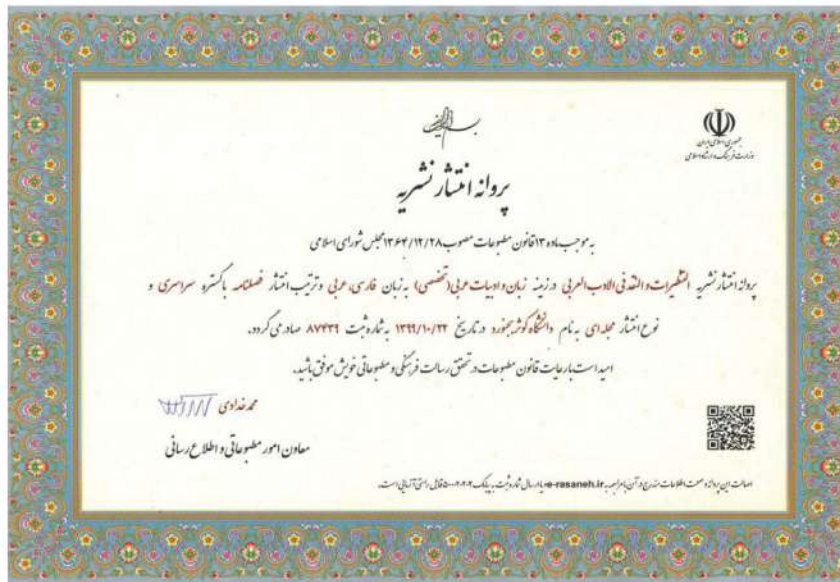 بسم الله الرحمن الرحیم
جمهوری اسلامی ایران
وزارت فرهنگ و ارشاد اسلامی
پروانه انتشار نشریه
به موجب ماده ۱۳ قانون مطبوعات مصوب ۱۳۶۴/۱۲/۲۸ مجلس شورای اسلامی
پروانه انتشار نشریه التنظیرات و النقد فی الادب العربی در زمینه زبان و ادبیات عربی (تخصصی) به زبان فارسی، عربی و ترتیب انتشار فصلنامه با گستره سراسری و
نوع انتشار مجله ای به نام دانشگاه کوثر بجنورد در تاریخ ۱۳۹۹/۱۰/۲۲ به شماره ثبت ۸۷۴۳۹ صادر می گردد.
امید است با رعایت قانون مطبوعات در تحقق رسالت فرهنگی و مطبوعاتی خویش موفق باشید.
محمد خدادی
معاون امور مطبوعاتی و اطلاع رسانی
اصالت این پروانه و صحت اطلاعات مندرج در آن با مراجعه به e-rasaneh.ir و یا ارسال شماره ثبت به پیامک ۵۰۰۰۲۰۲۰۲ قابل راستی آزمایی است.